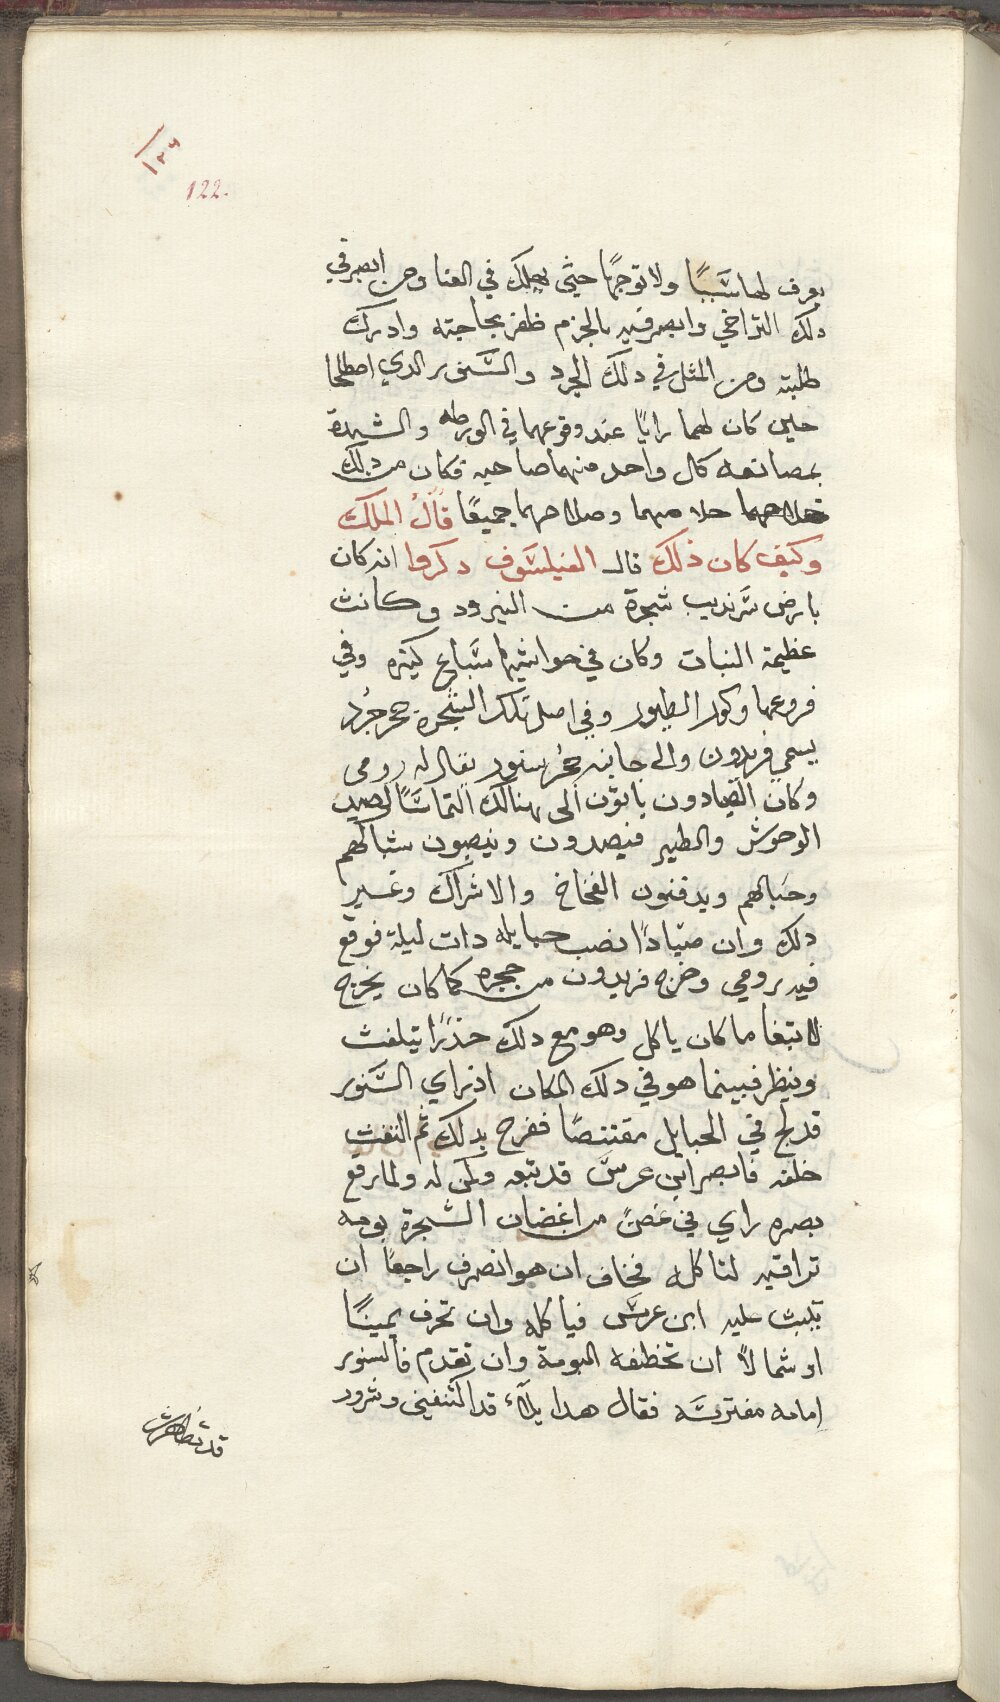 ١٢٦
122.
يعرف لها سَببًا ولا توجهًا حتي يهلك في العنا ومن ابصر في
دلك التراخي وابصر فيه بالجزم ظفر بحاجته وادرك
طلبته ومن المثل في دلك الجرد والسَّنور الدي اصطلحا
حين كان لهما رايًا عند وقوعهما في الورطه والشدة
بمصانعه كل واحد منهما صاحبه فكان من دلك
خلاصهما وصلاحهما جميعًا قال الملك
وكيف كان ذلك قال الفيلسَوف دكروا انه كان
بارض سَرنديب شجرة من النيرود وكانت
عظيمة النبات وكان في حواشيها سَباع كثيره وفي
فروعها وكور الطيور وفي اصل تلك الشجرة جحر جُرد
يسمي فريدون والى جانبه جحُر سنور يقال له رومي
وكان الصيادون ياتون الى هنالك التماسًا لصيد
الوحوش والطير فيصدون وينصبون شباكهم
وحبالهم ويدفنون الفخاخ والاشراك وغير
دلك وان صيّادًا نصب حبايله دات ليلة فوقع
فيه رومي وخرج فريدون من جحره كما كان يخرج
لابتغا ما كان ياكل وهو مع دلك حذرًا يتلفت
وينظر فبينما هو في دلك المكان اذ راي السَّنور
قد لج في الحبايل مقتنصًا ففرح بدلك ثم التفت
خلفه فابصر ابن عرسَ قد تبعه وكمن له ولما رفع
بصره راي في غصنً من اغصان الشجرة بومه
تراقبه لتاكله فخاف ان هو انصرف راجعًا ان
يثبت عليه ابن عرسَ فياكله وان تحرف يمينًا
او شمالًا ان تخطفه البومة وان تقدم فالسنور
امامه مفترسَه فقال هدا بلآء قد اكتنفني وشرور
قد تظاهرت